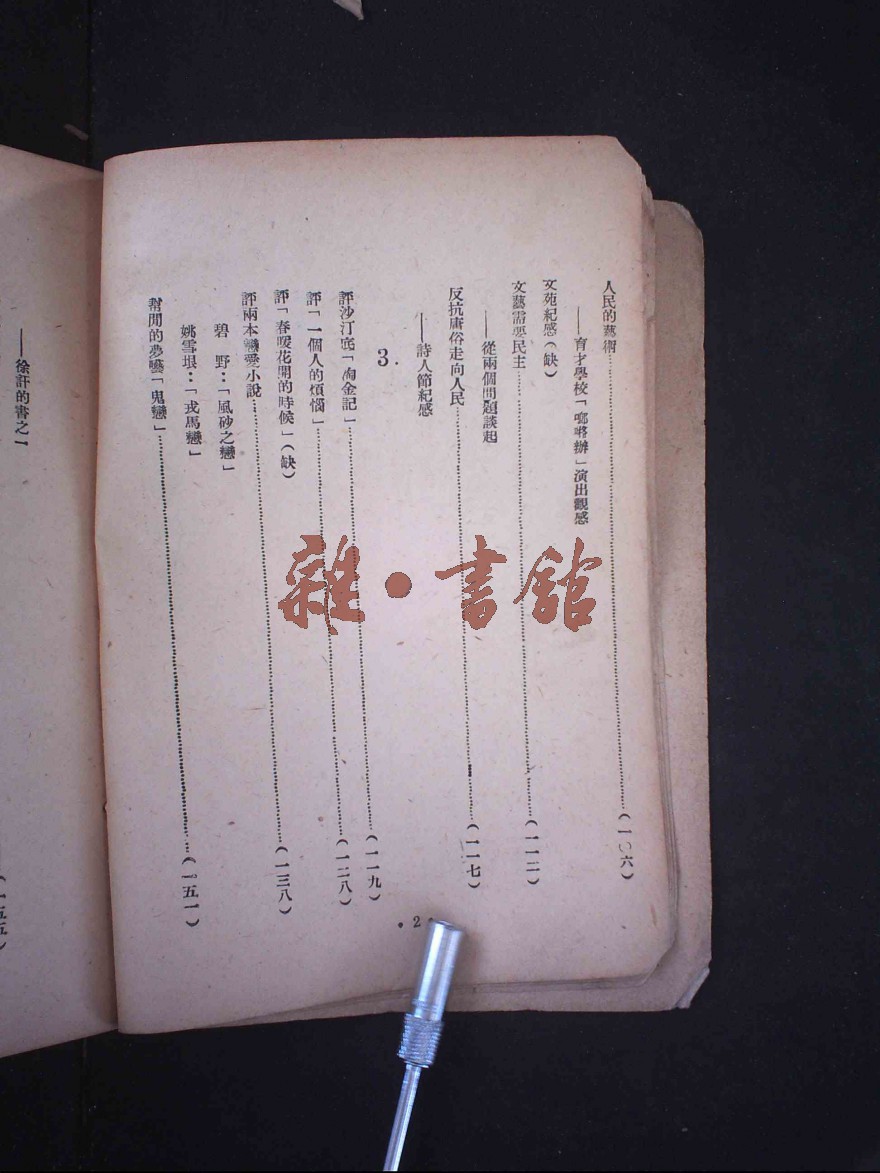 人民的藝術……(一〇六)
——育才學校「啷噹辦」演出觀感
文苑紀感(缺)
文藝需要民主……(一一二)
——從兩個問題談起
反抗庸俗走向人民……(一一七)
——詩人節紀感
3.
評沙汀底「淘金記」……(一一九)
評「一個人的煩惱」……(一二八)
評「春暖花開的時候」(缺)
評兩本戀愛小說……(一三八)
碧 野:「風砂之戀」
姚雪垠:「戎馬戀」
幫閒的夢囈「鬼戀」……(一五一)
·2·
——徐訏的書之一
(一五五)
雜·書館